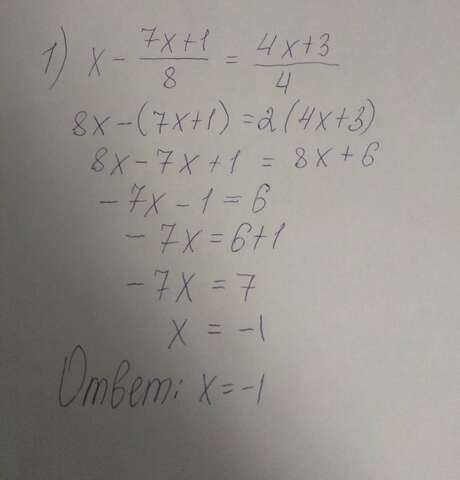 1) x - \frac{7x+1}{8} = \frac{4x+3}{4}
8x-(7x+1)=2(4x+3)
8x-7x+1 = 8x+6
-7x-1=6
-7x=6+1
-7x=7
x = -1
Ответ: x=-1